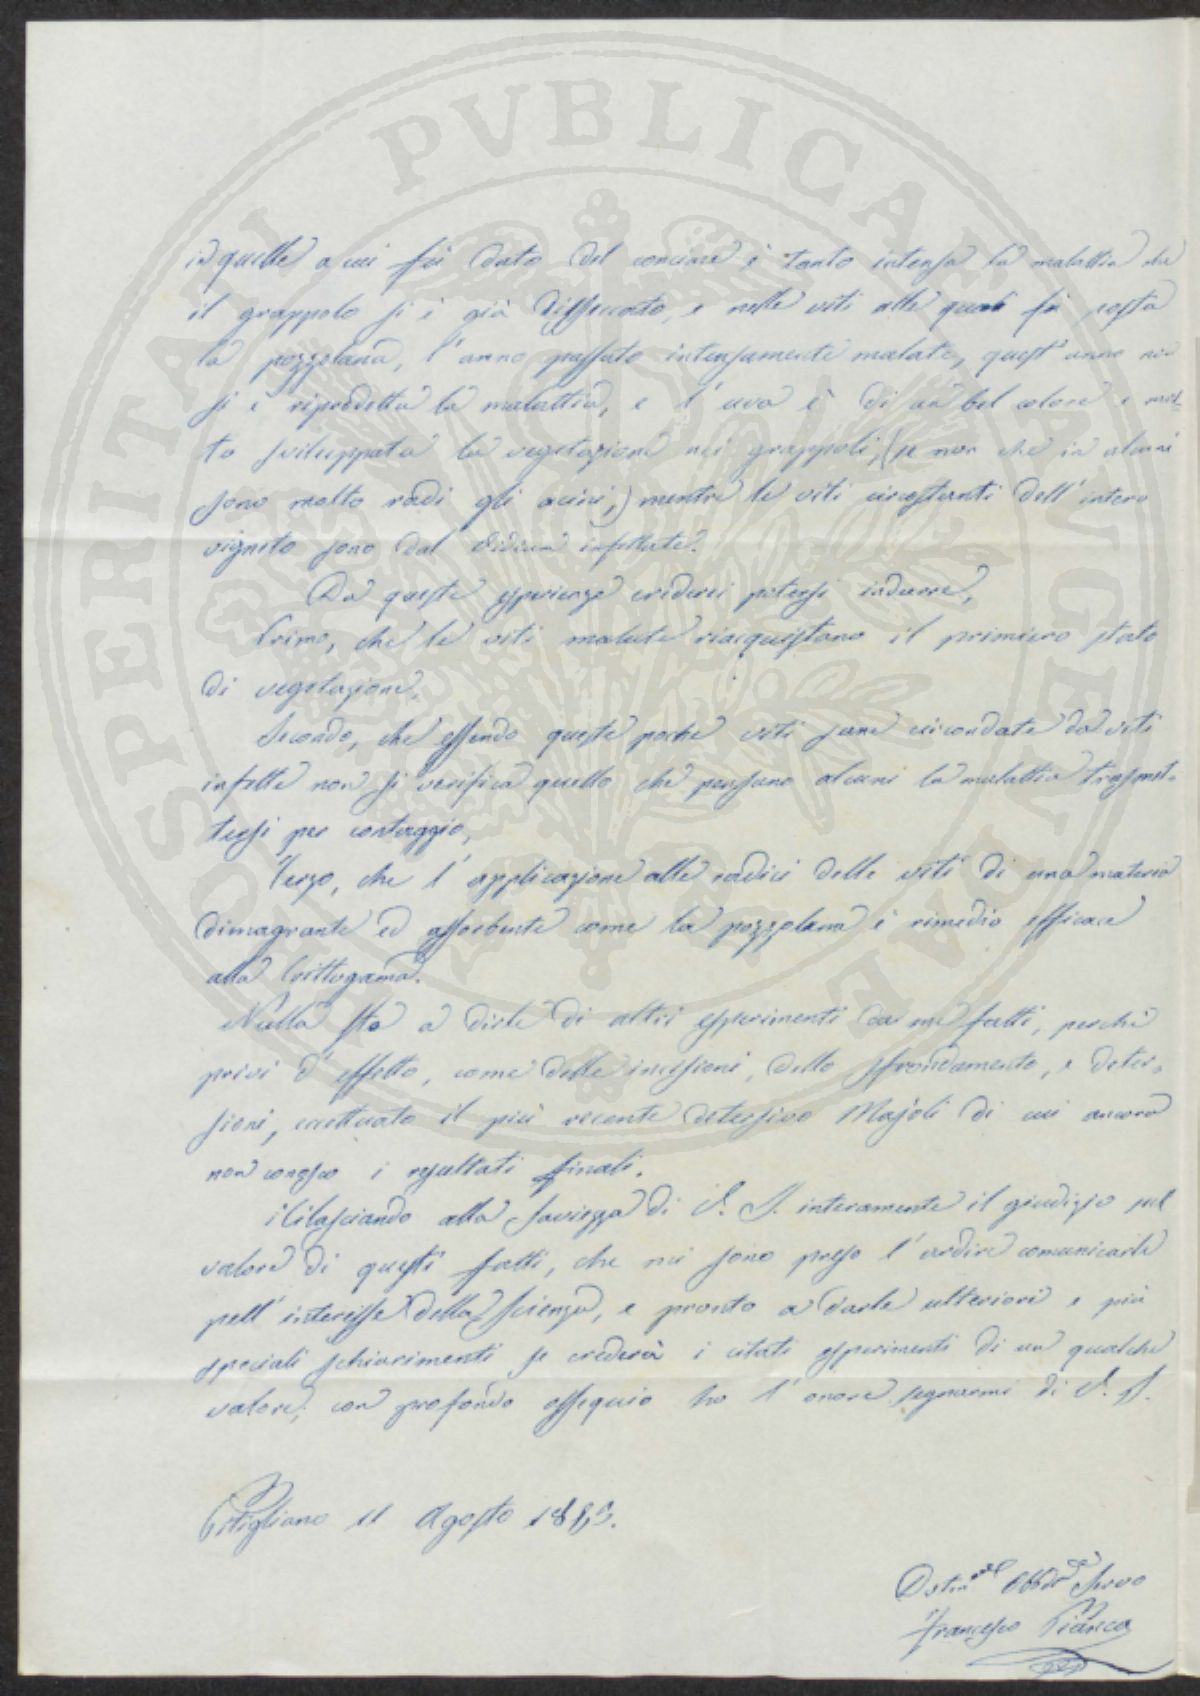 PROSPERITATI PVBLICAE AVGENDAE
in quelle a cui fù dato del concime è tanto intensa la malattia che
il grappolo si è già disseccato, e nelle viti alle quali fù posta
la pozzolana, l'anno passato intensamente malate, quest'anno non
si è riprodotta la malattia, e l'uva è di un bel colore e mol-
to sviluppata la vegetazione nei grappoli, (se non che in alcuni
sono molto radi gli acini,) mentre le viti circostanti dell'intero
vigneto sono dal infettate.
Da queste esperienze crederei potersi indurre,
Primo, che le viti malate riacquistano il primiero stato
di vegetazione.
Secondo, che essendo queste poche viti sane circondate da viti
infette non si verifica quello che pensano alcuni la malattia trasmet-
tersi per contaggio,
Terzo, che l'applicazione alle radici delle viti di una materia
dimagrante ed assorbente come la pozzolana è rimedio efficace
alla Crittogama.
Nulla sto a dirle di altri esperimenti da me fatti, perchè
privi d'effetto, come delle incisioni, dello sfrondamento, e deter-
sioni, eccettuato il più recente detersivo Majoli di cui ancora
non conosco i resultati finali.
Rilasciando alla saviezza di V. S. interamente il giudizio sul
valore di questi fatti, che mi sono preso l'ardire comunicarle
pell'interesse della Scienza, e pronto a darle ulteriori e più
speciali schiarimenti se crederà i citati esperimenti di un qualche
valore, con profondo ossequio ho l'onore segnarmi di V. S.
Pitigliano 11 Agosto 1853.
Servo
Francesco Pianca